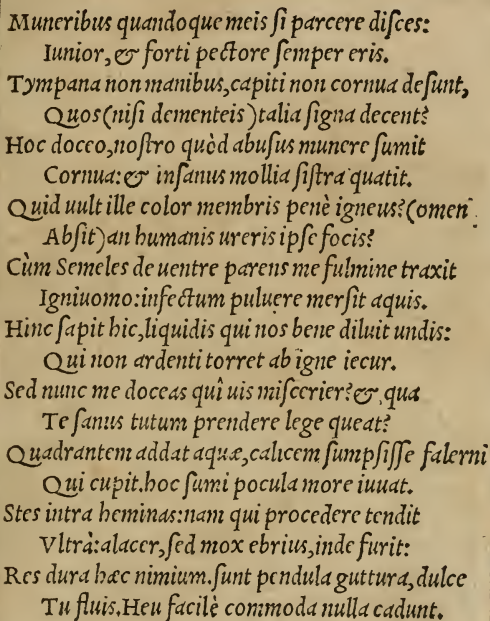 Muneribus quandoque meis ſi parcere diſces:
Iunior, & forti pectore ſemper eris.
Tympana non manibus, capiti non cornua deſunt,
Quos (niſi dementeis) talia ſigna decent?
Hoc doceo, noſtro quòd abuſus munere ſumit
Cornua: & inſanus mollia ſiſtra quatit.
Quid uult ille color membris penè igneus? (omen
Abſit) an humanis ureris ipſe focis?
Cùm Semeles de uentre parens me fulmine traxit
Igniuomo: infectum puluere merſit aquis.
Hinc ſapit hic, liquidis qui nos bene diluit undis:
Qui non ardenti torret ab igne iecur.
Sed nunc me doceas quî uis miſcerier? & qua
Te ſanus tutum prendere lege queat?
Quadrantem addat aquæ, calicem ſumpſiſſe falerni
Qui cupit. hoc ſumi pocula more iuuat.
Stes intra heminas: nam qui procedere tendit
Vltrà: alacer, ſed mox ebrius, inde furit:
Res dura hæc nimium. ſunt pendula guttura, dulce
Tu fluis. Heu facilè commoda nulla cadunt.